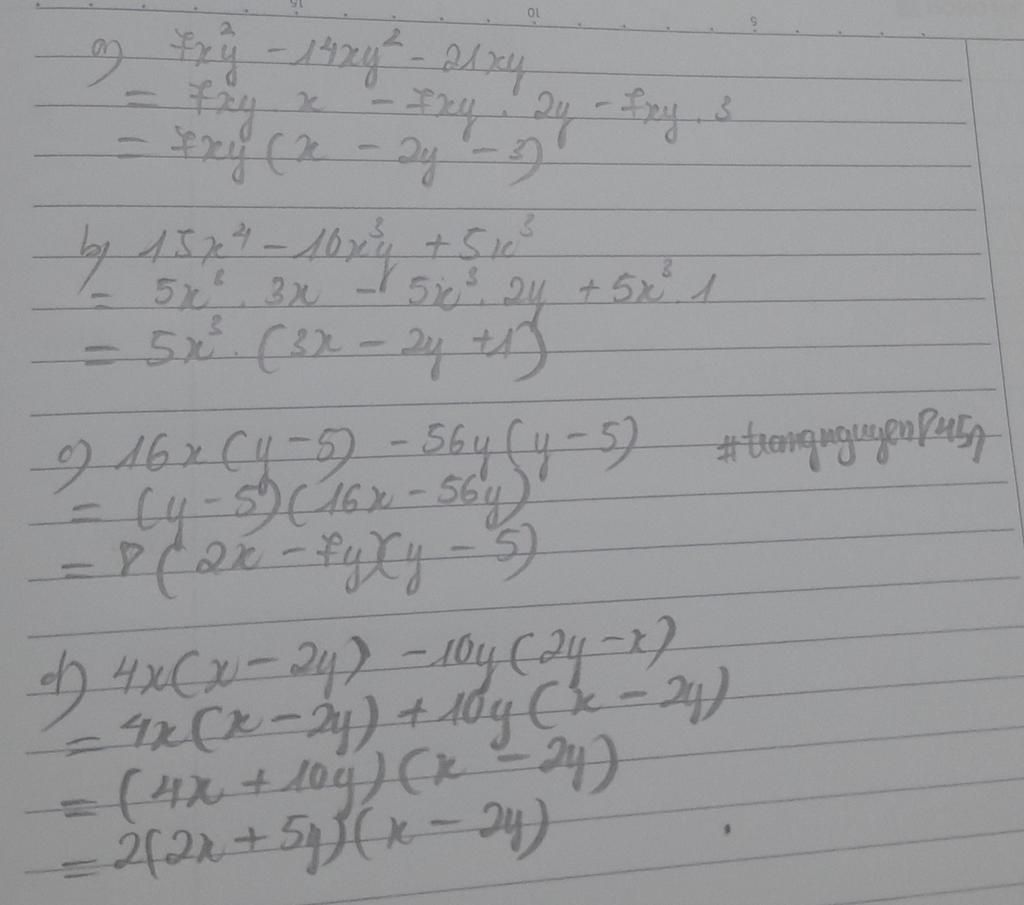 a) 7x²y - 14xy² - 21xy
= 7xy x - 7xy . 2y - 7xy . 3
= 7xy (x - 2y - 3)
b) 15x⁴ - 10x³y + 5x³
= 5x³ . 3x - 5x³ . 2y + 5x³ . 1
= 5x³ . (3x - 2y + 1)
c) 16x (y - 5) - 56y (y - 5)
= (y - 5) (16x - 56y)
= 8 (2x - 7y)(y - 5)
d) 4x(x - 2y) - 10y (2y - x)
= 4x (x - 2y) + 10y (x - 2y)
= (4x + 10y) (x - 2y)
= 2(2x + 5y)(x - 2y)